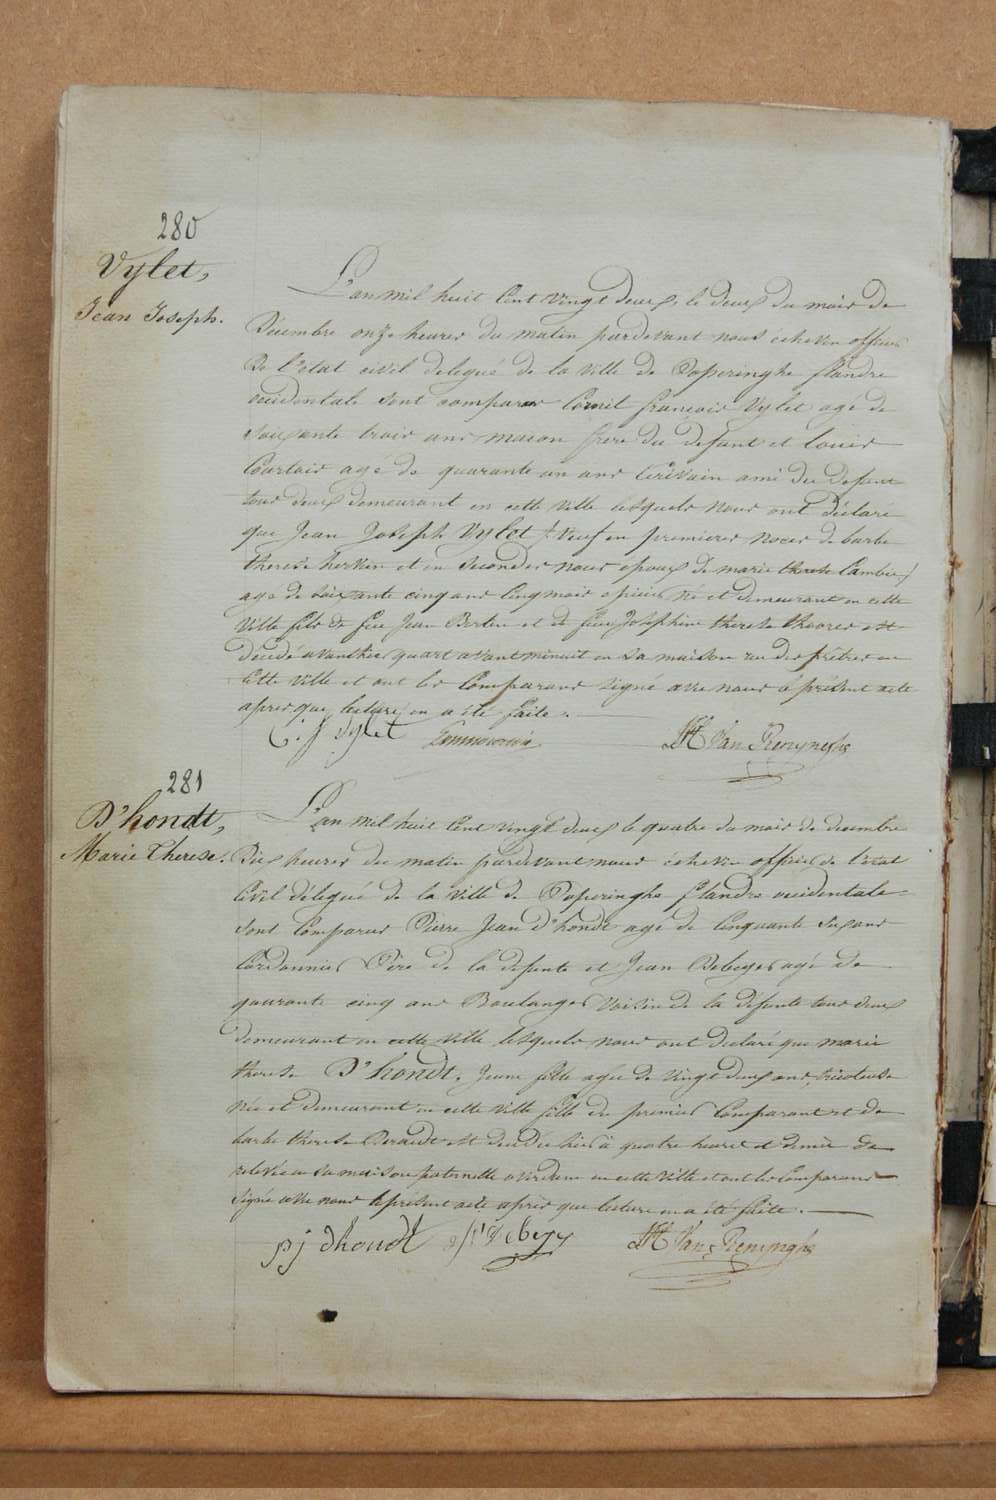 280
Vylet,
Jean Joseph.
L'an mil huit Cent vingt deux, le deux du mois de
Décembre onze heures du matin pardevant nous échevin officier
De l'état civil delegué de la ville de Poperinghe flandre
occidentale sont comparus Cornil francois Vylet agé de
Soixante trois ans macon frere du defunt et Louis
Courtois agé de quarante un ans Ecrivain ami du defunt
tous deux demeurant en cette ville lesquels nous ont déclaré
que Jean Joseph Vylet veuf en premieres noces de barbe
therese et en Secondes noces époux de marie therese
agé de Soixante cinq ans Cinq mois né et demeurant en cette
ville fils de feu Jean Bertin et de feue Josephine therese est
décédé avanthier quart avant minuit en sa maison rue des prêtres en
Cette ville et ont les Comparans signé avec nous le présent acte
apres que lecture en a été faite.
C. f Vylet
Van Renynghe
281
D'hondt,
Marie Therese.
L'an mil huit Cent vingt deux le quatre du mois de decembre
Dix heures du matin pardevant nous échevin officier de l'état
Civil délegué de la ville de Poperinghe flandre occidentale
sont Comparus Pierre Jean D'hondt agé de Cinquante Six ans
Cordonnier Père de la defunte et Jean agé de
quarante cinq ans Boulanger voisin de la défunte tous deux
demeurant en cette ville lesquels nous ont declaré que marie
therese D'hondt, Jeune fille agée de vingt deux ans, tricoteuse
Née et demeurant en cette ville fille du premier Comparant et de
barbe therese est décédée hier à quatre heures et demie de
relevée en sa maison paternelle en cette ville et ont les Comparans
Signé avec nous le présent acte après que lecture en a été faite.
pj dhondt
Van Renynghe